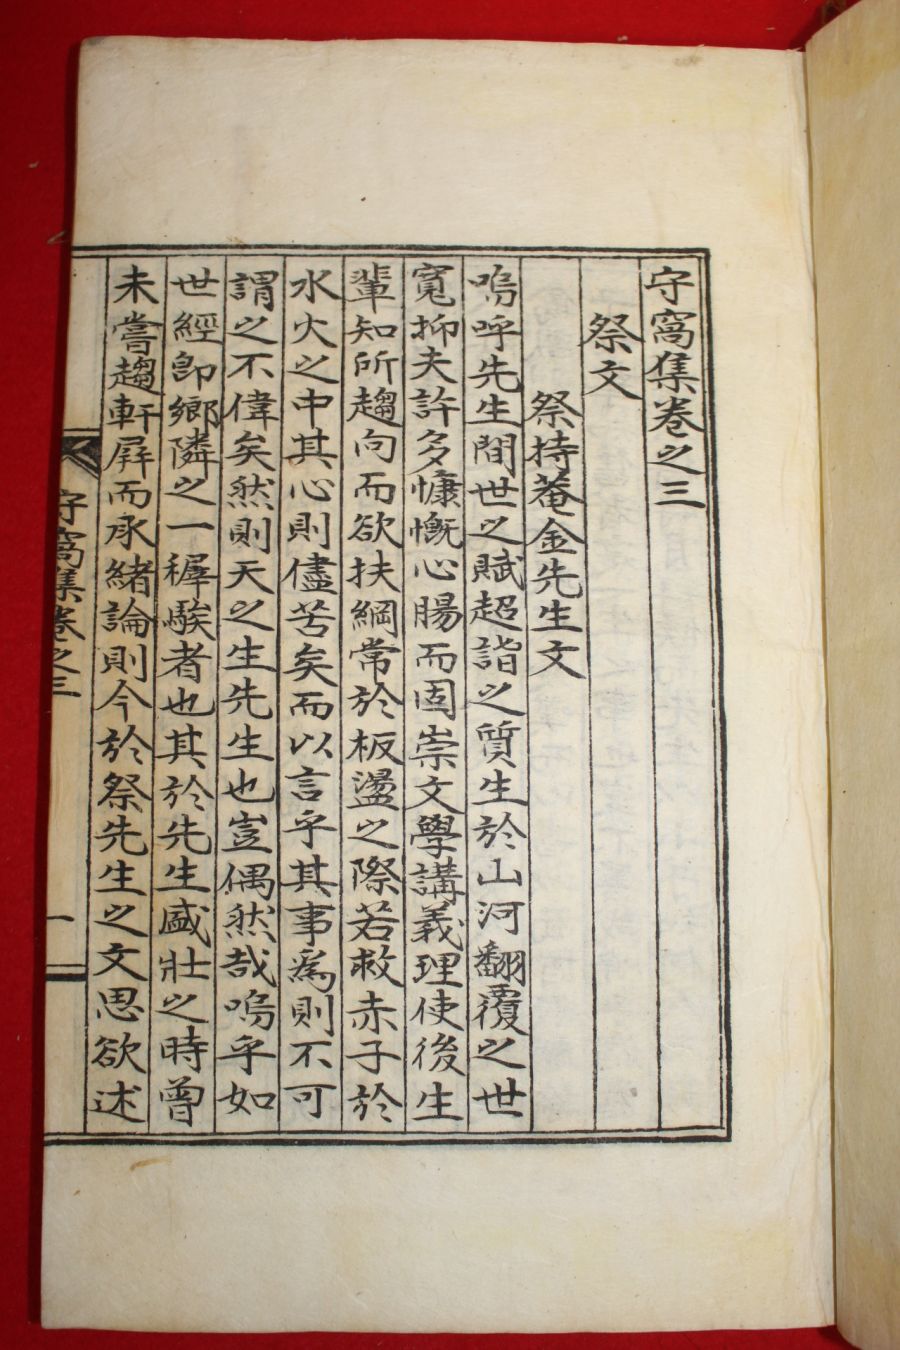 守窩集卷之三
祭文
祭持菴金先生文
嗚呼先生間世之賦超詣之質生於山河翻覆之世
寃抑夫許多慷慨心腸而固崇文學講義理使後生
輩知所趨向而欲扶綱常於板盪之際若救赤子於
水火之中其心則儘苦矣而以言乎其事爲則不可
謂之不偉矣然則天之生先生也豈偶然哉嗚乎如
世經卽鄉隣之一穉騃者也其於先生盛壯之時曾
未嘗趨軒屛而承緖論則今於祭先生之文思欲述
守窩集卷之三
一